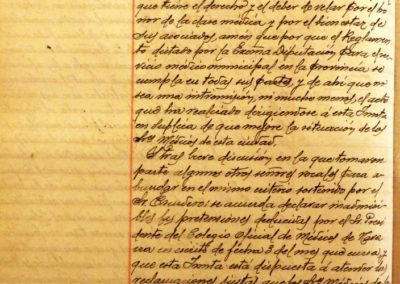 que tiene el derecho y el deber de velar por el ho-
nor de la clase médica y por el bienestar de
sus asociados, amén que por que el Reglamen-
to dictado por la Excma Diputación para el ser-
vicio médico municipal en la provincia se
cumpla en todas sus partes, y de ahí que no
sea una intromisión, ni mucho menos, el acto
que ha realizado dirigiéndose á esta Junta
en súplica de que mejore la situación de los
Sres Médicos de esta ciudad.
Tras breve discusión en la que tomaron
parte algunos otros señores vocales para a-
bundar en el mismo criterio sostenido por el
Sr. se acuerda declarar inadmisi-
bles las pretensiones deducidas por el Sr. Presi-
dente del Colegio Oficial de Médicos de Nava-
rra en escrito de fecha 3 del mes que cursa y
que esta Junta está dispuesta á atender las
reclamaciones justas que los Sres Médicos de la